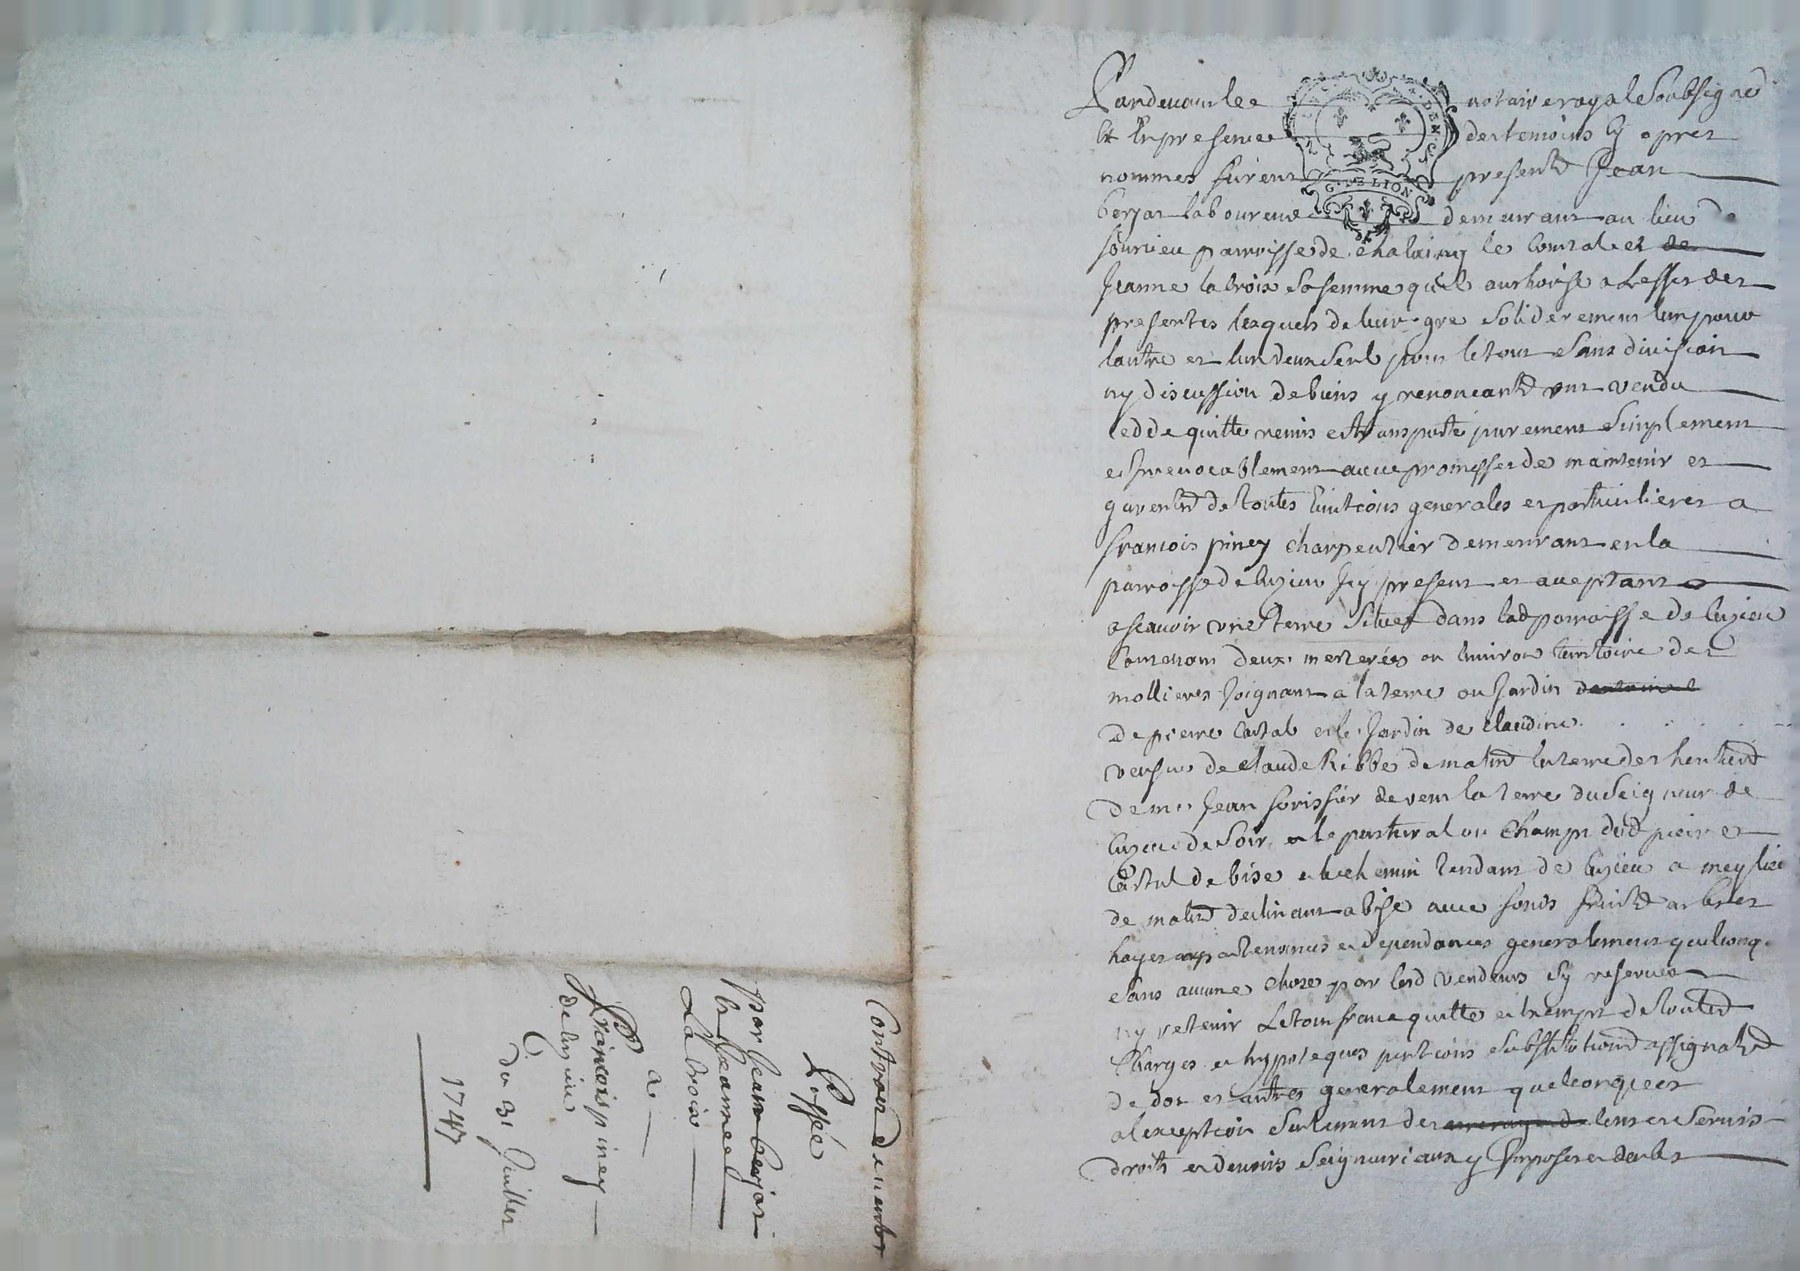 Pardevant le notaire royal Soubsigné
et En presence des temoins Cy apres
nommes furent presents Jean
berjat laboureur demeurant au lieu de
sourcieu parroisse de chalain le Comtal et de
Jeanne la Croix Sa femme quil authorise a Leffet des
presentes lesquels de leur gre Soliderement lun pour
lautre et lun deux Seul pour le tout Sans division
ny discussion de biens y renoncants ont vendu
cedde quitte remis et transporté purement Simplement
et Jrrevocablement avec promesses de maintenir et
de toutes generales et particulieres a
francois piney charpentier demeurant en la
parroisse de luzieu Jcy present et acceptant
a scavoir une terre Situee dans lad parroisse de luzieu
Contenant deux meterées ou Environ territoire des
mollieres Joignant a la terre ou Jardin
de pierre et le Jardin de Claudine
de Claude de matin la terre des heritiers
de me Jean de vent la terre du Seigneur de
luzieu de Soir et le pastural ou Champt dud pierre
de bise et le chemin tendant de luzieu a meylieu
de matin declinant a bise avec fonds fruits arbres
hayes appartenances et dependances generalement quelconq.
Sans aucune chose par lesd vendeurs Sy reserver
ny retenir Le tout franc quitte et Exempt de toutes
Charges et hypoteques Substitutions assignats
de dot et autres generalement quelconques
a lexception Seulement des cens et Servis
droits et devoirs Seigneuriaux y Jmposes et
G. DE LION
Contract de vente
Passée
par Jean berjat
et Jeanne
La Croix
a
François piney
de luzieu
Du 31 Juillet
1747